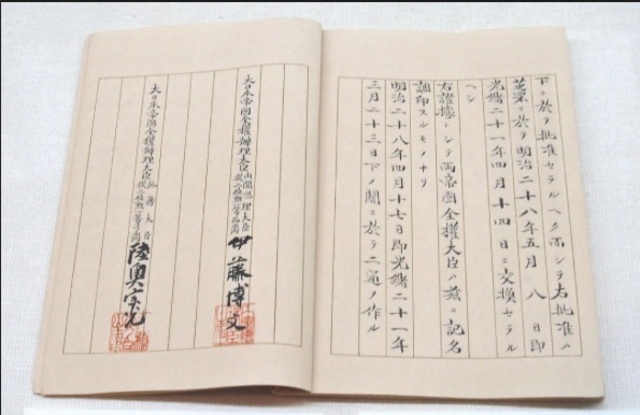 下ニ於テ批准セラルヘク而シテ右批准ハ
芝罘ニ於テ明治二十八年五月八日即
光緒二十一年四月十四日ニ交換セラル
ヘシ
右證據トシテ両帝國全權大臣ハ茲ニ記名
調印スルモノナリ
明治二十八年四月十七日即光緒二十一年
三月二十三日下ノ關ニ於テ二通ヲ作ル
大日本帝國全權辦理大臣内閣總理大臣伊藤博文
大日本帝國全權辦理大臣外務大臣陸奥宗光